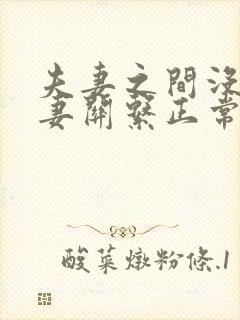 夫妻之間沒
妻關繫正常
酸菜燉粉條.1